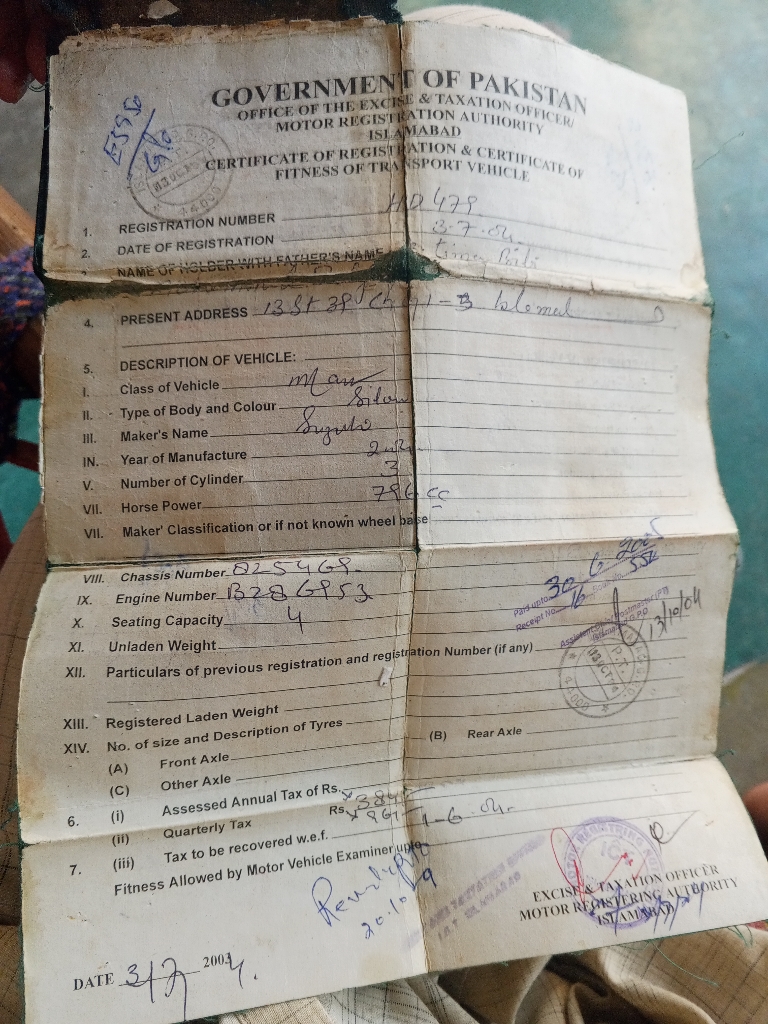 GOVERNMENT OF PAKISTAN
OFFICE OF THE EXCISE & TAXATION OFFICER/
MOTOR REGISTRATION AUTHORITY
ISLAMABAD
CERTIFICATE OF REGISTRATION & CERTIFICATE OF
FITNESS OF TRANSPORT VEHICLE
1. REGISTRATION NUMBER HD 479
2. DATE OF REGISTRATION 3-7-04.
NAME OF HOLDER WITH FATHER'S NAME Bibi
4. PRESENT ADDRESS 13 St 38
5. DESCRIPTION OF VEHICLE:
I. Class of Vehicle
II. Type of Body and Colour
III. Maker's Name Suzuki
IN. Year of Manufacture
V. Number of Cylinder 3
VII. Horse Power 796 cc
VII. Maker' Classification or if not known wheel base
VIII. Chassis Number 825469
IX. Engine Number B286953
X. Seating Capacity 4
XI. Unladen Weight
XII. Particulars of previous registration and registration Number (if any)
Paid upto 30 6 2005
Receipt No. 16
13/10/04
XIII. Registered Laden Weight
XIV. No. of size and Description of Tyres
(A) Front Axle (B) Rear Axle
(C) Other Axle
6. (i) Assessed Annual Tax of Rs.
(ii) Quarterly Tax Rs.
(iii) Tax to be recovered w.e.f. 1-6-04.
7. Fitness Allowed by Motor Vehicle Examiner upto
EXCISE & TAXATION OFFICER
MOTOR REGISTERING AUTHORITY
ISLAMABAD
DATE 3/7 2004.